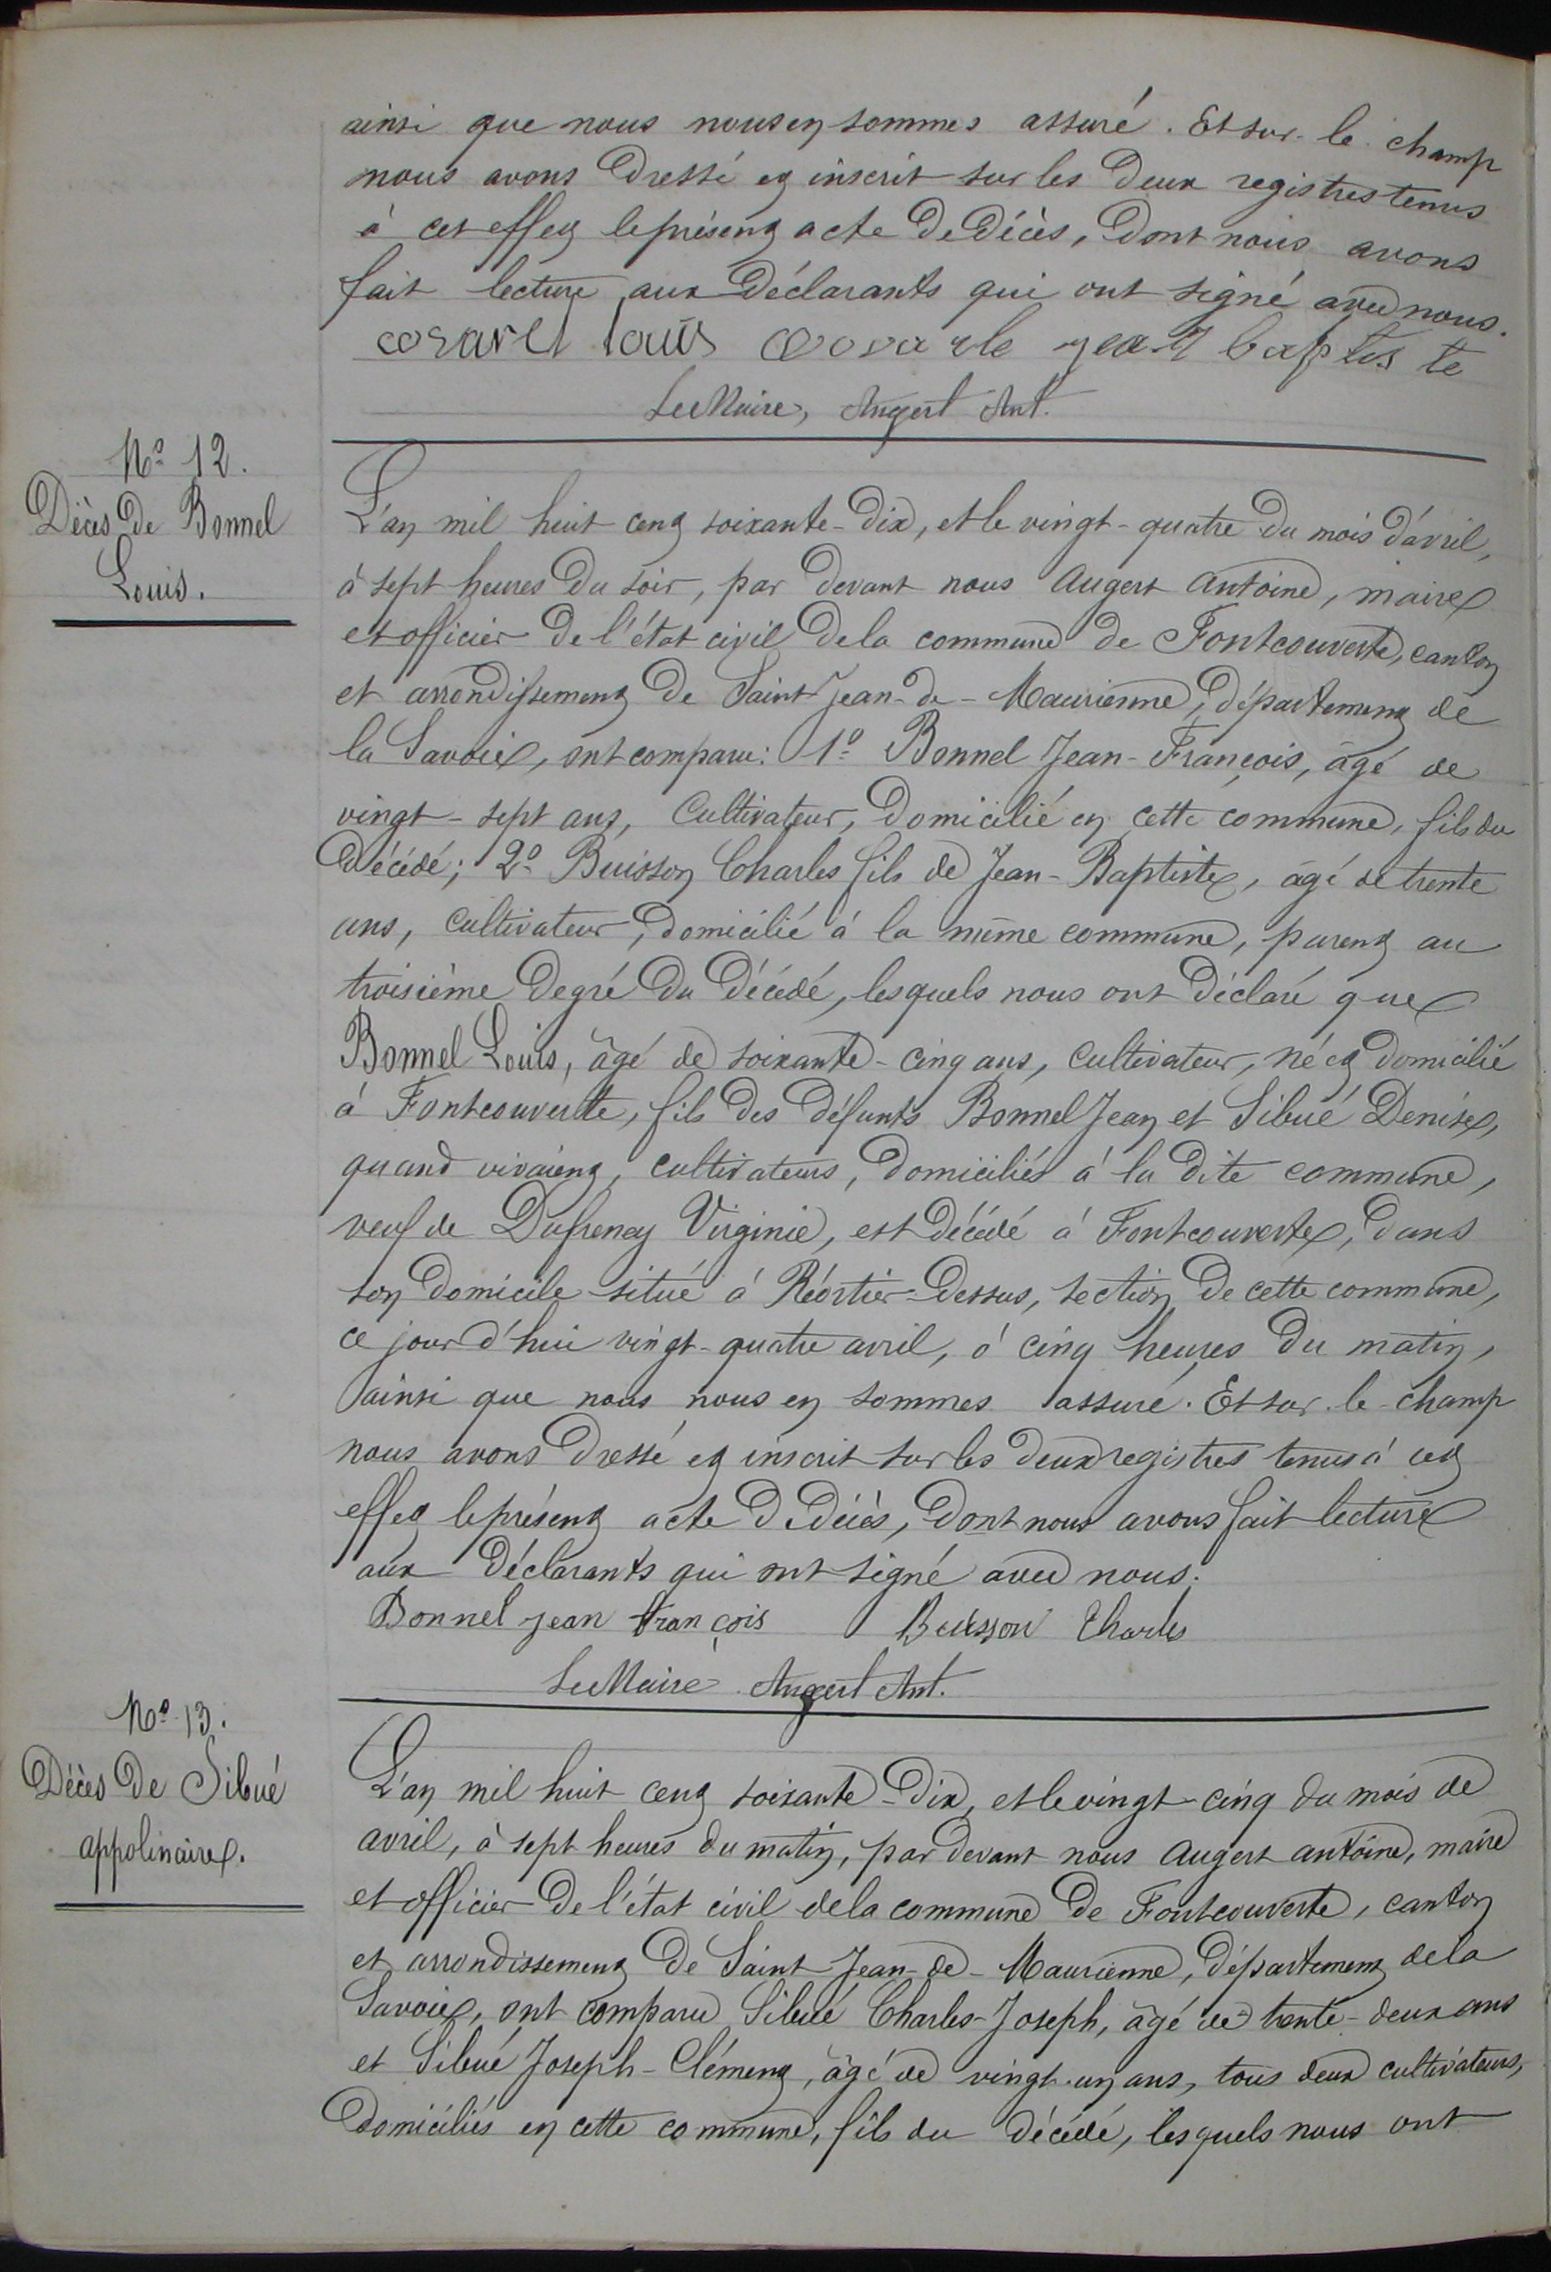 ainsi que nous nous en sommes assuré. Et sur-le-champ
nous avons dressé et inscrit sur les deux registres tenus
à cet effet le présent acte de décès, dont nous avons
fait lecture aux déclarants qui ont signé avec nous.
louis jean baptiste
Le Maire, Augert Ant.
N° 12.
Décès de Bonnel
Louis.
L'an mil huit cent soixante-dix, et le vingt-quatre du mois d'avril,
à sept heures du soir, par devant nous Augert Antoine, maire
et officier de l'état civil de la commune de Fontcouverte, canton
et arrondissement de Saint-Jean-de-Maurienne, département de
la Savoie, ont comparu: 1° Bonnel Jean-François, âgé de
vingt-sept ans, cultivateur, domicilié en cette commune, fils du
décédé; 2° Buisson Charles fils de Jean-Baptiste, âgé de trente
ans, cultivateur, domicilié à la même commune, parent au
troisième degré du décédé, lesquels nous ont déclaré que
Bonnel Louis, âgé de soixante-cinq ans, cultivateur, né et domicilié
à Fontcouverte, fils des défunts Bonnel Jean et Sibué Denise,
quand vivaient, cultivateurs, domiciliés à la dite commune,
veuf de Dufreney Virginie, est décédé à Fontcouverte, dans
son domicile situé à Réortier-Dessus, section de cette commune,
ce jour d'hui vingt-quatre avril, à cinq heures du matin,
ainsi que nous nous en sommes assuré. Et sur-le-champ
nous avons dressé et inscrit sur les deux registres tenus à cet
effet le présent acte de décès, dont nous avons fait lecture
aux déclarants qui ont signé avec nous.
Bonnel jean françois Buisson Charles
Le Maire Augert Ant.
N° 13.
Décès de Sibué
appolinaire.
L'an mil huit cent soixante-dix, et le vingt-cinq du mois de
avril, à sept heures du matin, par devant nous Augert antoine, maire
et officier de l'état civil de la commune de Fontcouverte, canton
et arrondissement de Saint-Jean-de-Maurienne, département de la
Savoie, ont comparu Sibué Charles-Joseph, âgé de trente-deux ans
et Sibué Joseph-Clément, âgé de vingt-un ans, tous deux cultivateurs,
domiciliés en cette commune, fils du décédé, lesquels nous ont